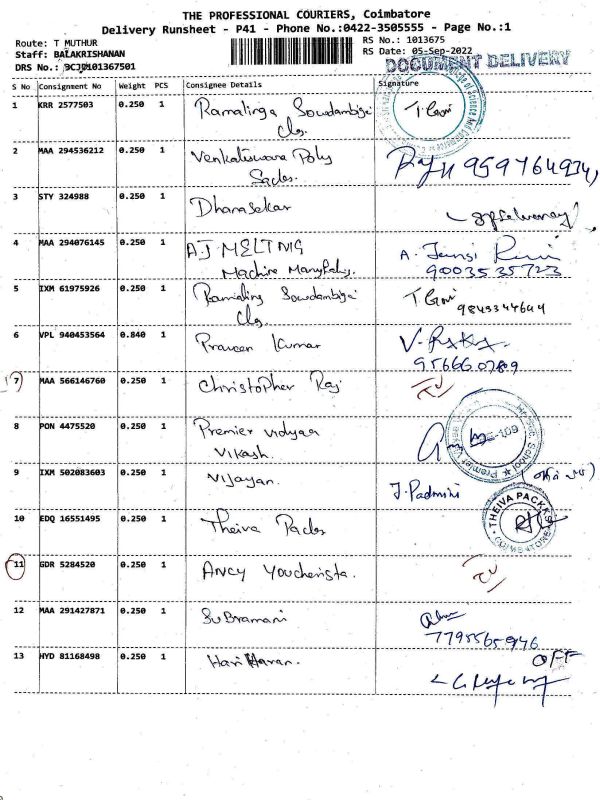 THE PROFESSIONAL COURIERS, Coimbatore
Delivery Runsheet - P41 - Phone No.:0422-3505555 - Page No.:1
Route: T MUTHUR
RS No.: 1013675
Staff: BALAKRISHANAN
RS Date: 05-Sep-2022
DOCUMENT DELIVERY
S No Consignment No Weight PCS Consignee Details Signature
1 KRR 2577503 0.250 1 Ramalinga Sowdambigai
Clg.
2 MAA 294536212 0.250 1 Venkateswara Poly
Sacks.
3 STY 324988 0.250 1 Dhanasekar
4 MAA 294076145 0.250 1 A.J. MELTING
Machine
A. Jansi Rani
9003535723
5 IXM 61975926 0.250 1 Ramaling Sowdambigai
Clg
T Gowri
9843344644
6 VPL 940453564 0.840 1 Praveen Kumar
7 MAA 566146760 0.250 1 Christopher Raj
8 PON 4475520 0.250 1 Premier vidyaa
vikash.
9 IXM 502083603 0.250 1 Vijayan.
J. Padmini
10 EDQ 16551495 0.250 1 Theiva Packs
THEIVA PACKKS
COIMBATORE
11 GDR 5284520 0.250 1 ANCY Youcherista.
12 MAA 291427871 0.250 1 SuBramani
13 HYD 81168498 0.250 1 Hari Haran.
OFF